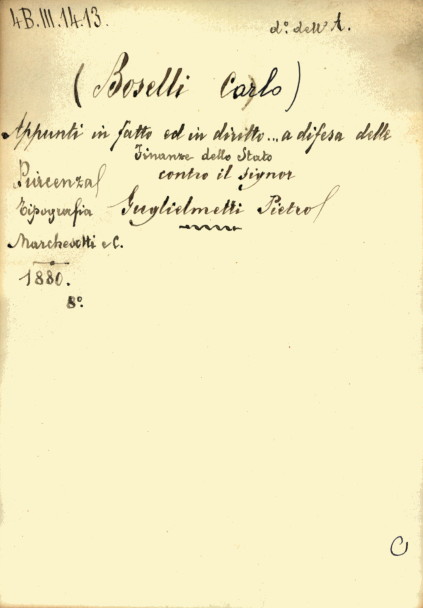 4B.III.14.13.
d.º dell'A.
(Boselli Carlo)
Appunti in fatto ed in diritto... a difesa delle
Finanze dello Stato
contro il Signor
Guglielmetti Pietro
Piacenza
Tipografia
Marchesotti e C.
1880.
8º.